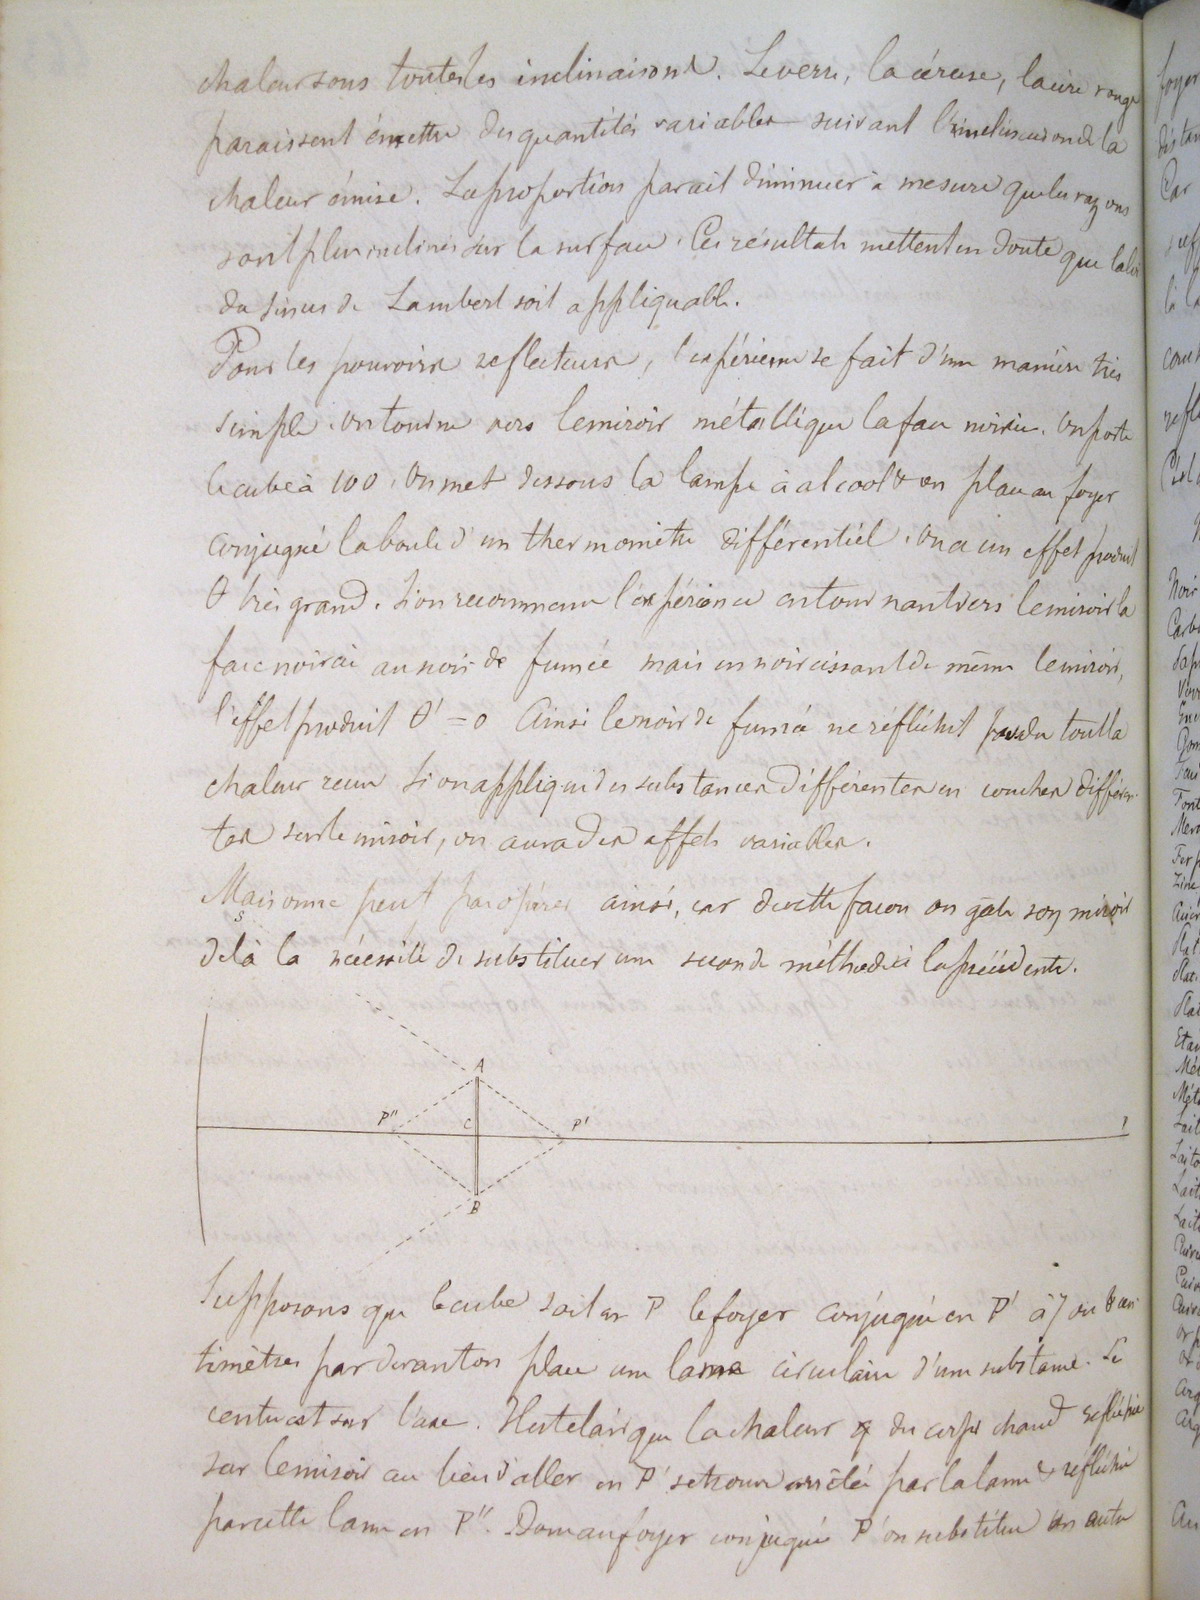 chaleur sous toutes les inclinaisons. Le verre, la céruse, la cire rouge
paraissent émettre des quantités variables suivant l'inclinaison de la
chaleur émise. La proportion parait diminuer à mesure que les rayons
sont plus inclinés sur la surface. Ces résultats mettent en doute que la loi
du sinus de Lambert soit appliquable.
Pour les pouvoirs reflecteurs, l'expérience se fait d'une manière très
simple. on tourne vers le miroir métallique la face noircie. on porte
le cube à 100. On met dessous la lampe à alcool & on place au foyer
conjugué la boule d'un thermomètre différentiel. on a un effet produit
θ très grand. Si on recommence l'expérience en tournant vers le miroir la
face noircie au noir de fumée mais en noircissant de même le miroir,
l'effet produit θ' = 0 Ainsi le noir de fumée ne réfléchit pas du tout la
chaleur reçue Si on applique des substances différentes en couches différen-
tes sur le miroir, on aura des effets variables.
Mais on ne peut pas opérer ainsi, car de cette façon on gâte son miroir
de là la nécessité de substituer une seconde méthode à la précédente.
A
P'' C P'
B
Supposons que le cube soit en P le foyer conjugué en P' à 7 ou 8 cen-
timètres par devant on place une lame circulaire d'une substance. Le
centre est sur l'axe. Il est clair que la chaleur du corps chaud réfléchie
sur le miroir au lieu d'aller en P' se trouve arrêtée par la lame & réfléchie
par cette lame en P''. Donc au foyer conjugué P' on substitue un autre